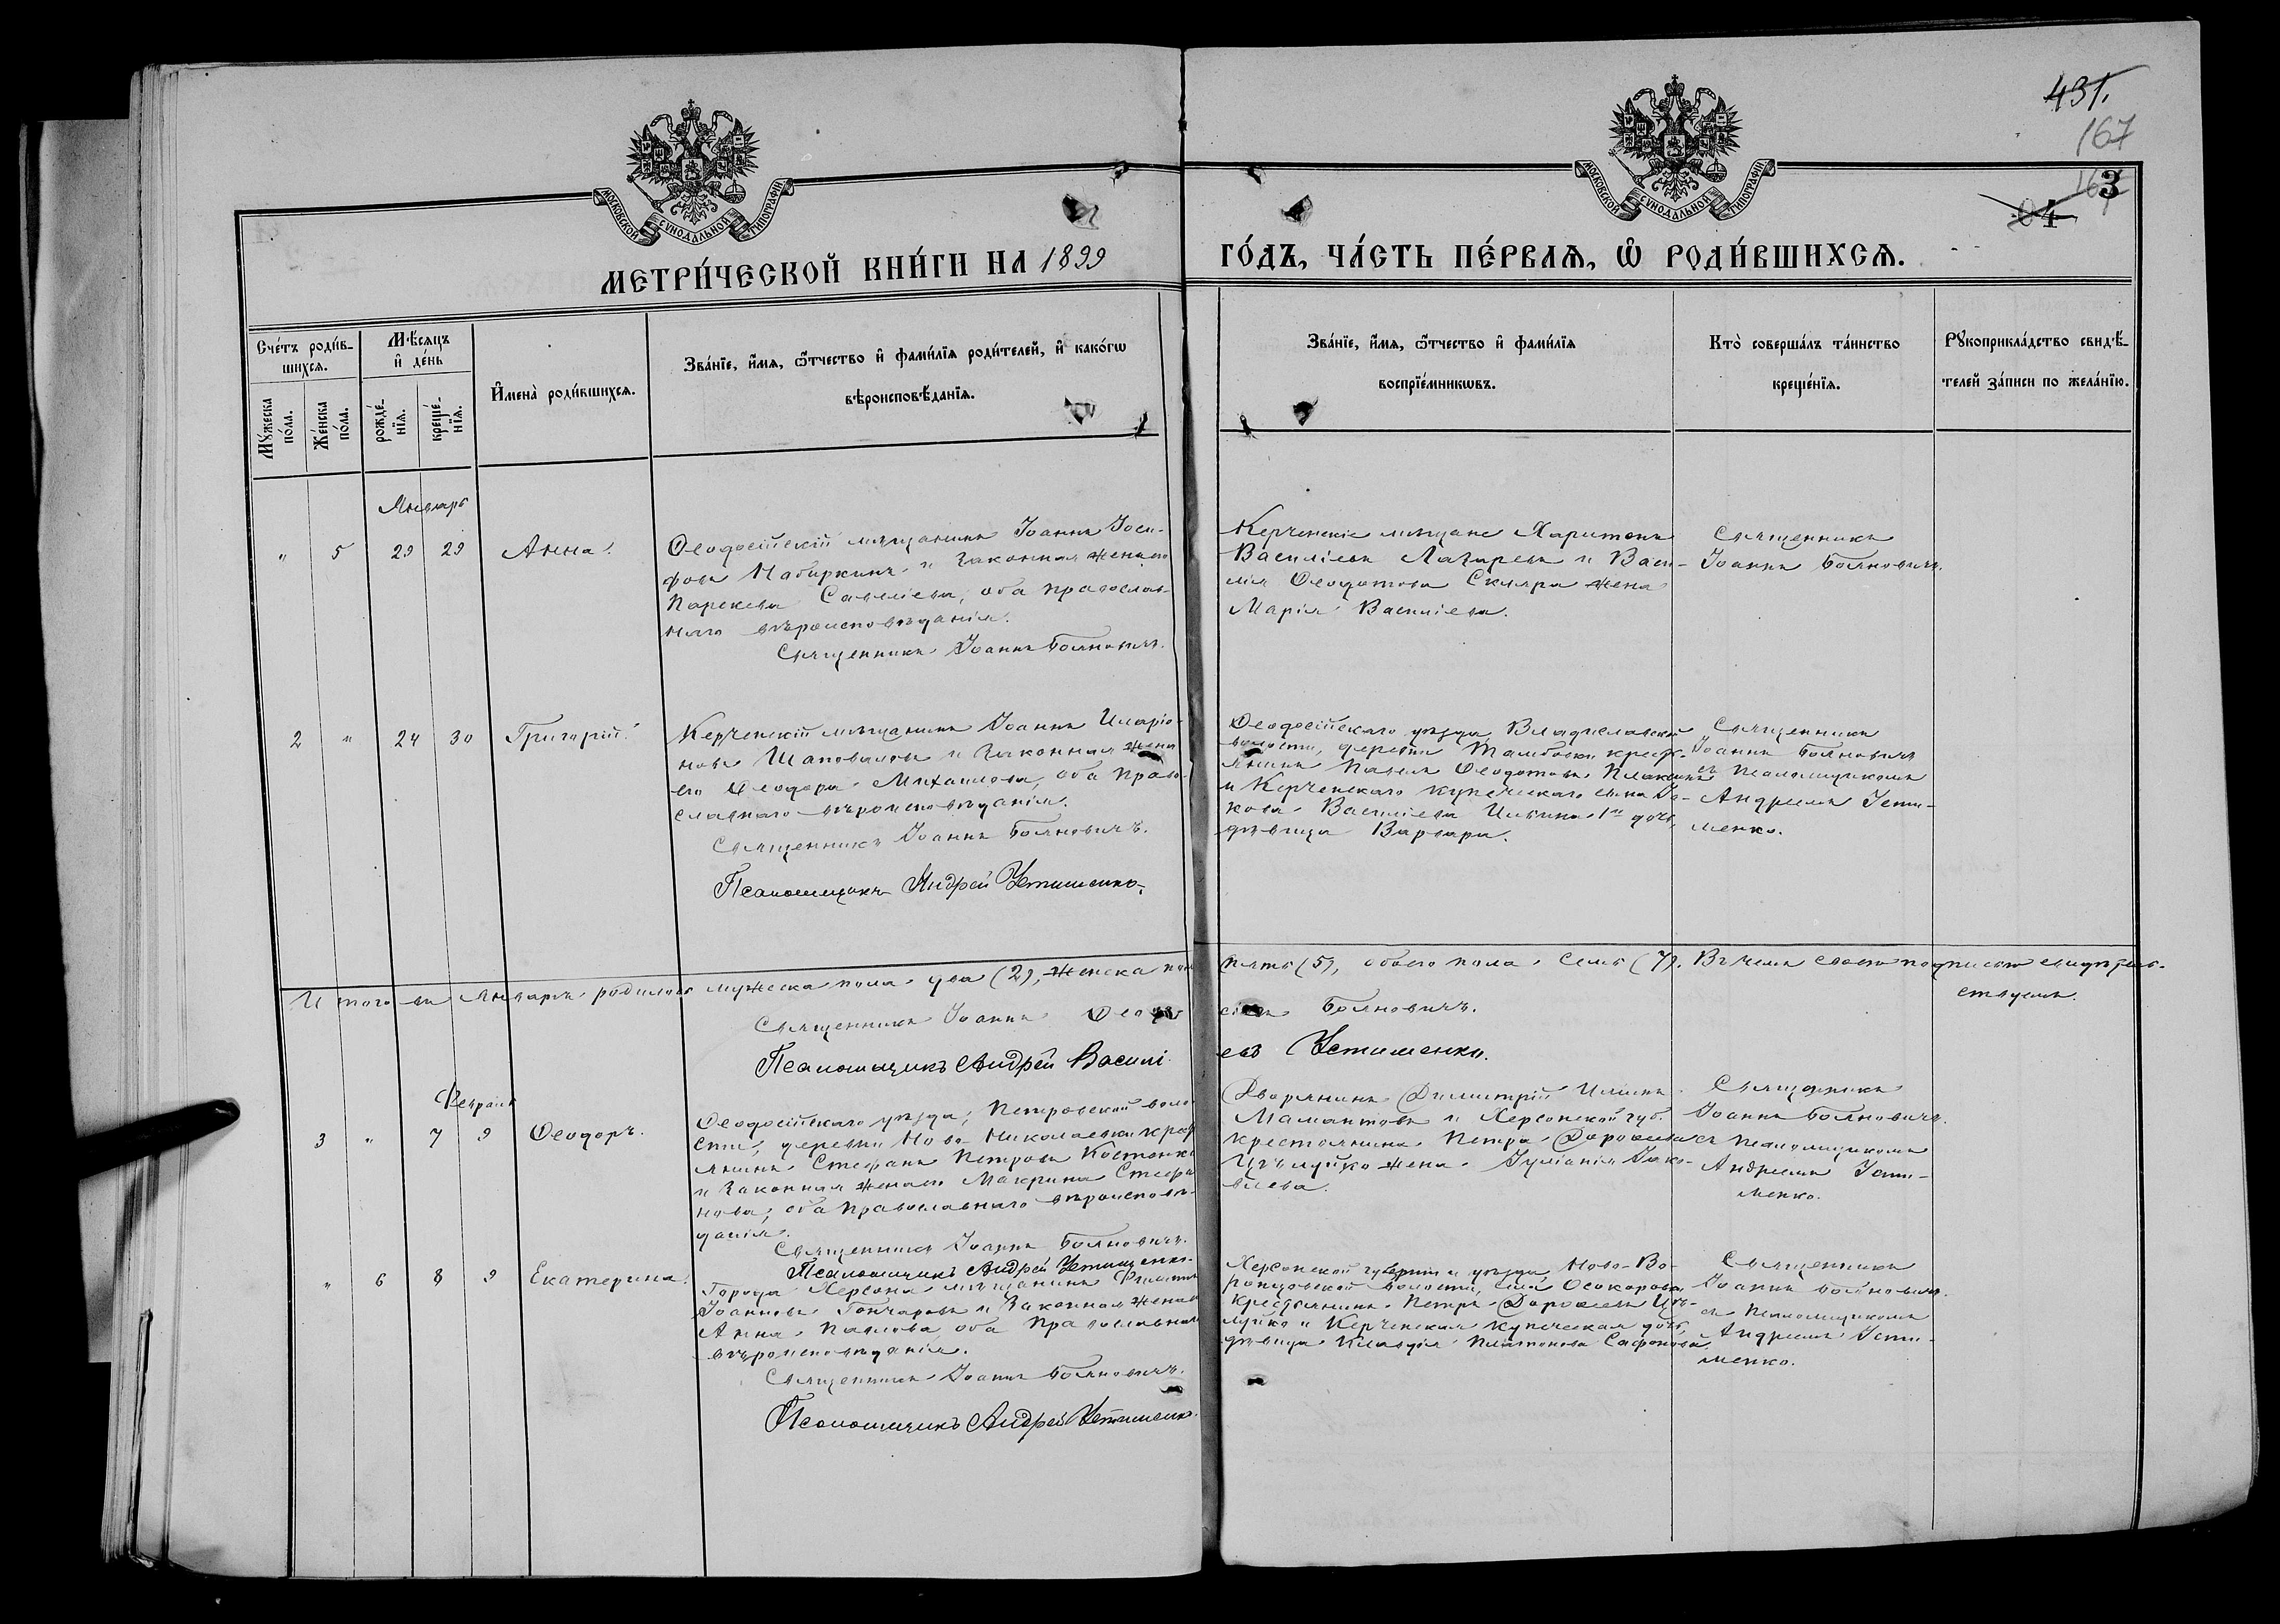 431.
167
3
МОСКОВСКОЙ СѴНОДАЛЬНОЙ ТИПОГРАФІИ
МОСКОВСКОЙ СѴНОДАЛЬНОЙ ТИПОГРАФІИ
МЕТРИ́ЧЕСКОЙ КНИ́ГИ НА 1899
ГО́ДЪ, ЧА́СТЬ ПЕ́РВАѦ, Ѽ РОДИ́ВШИХСѦ.
Сче́тъ роди́в-
шихсѧ.
Мꙋ́жеска по́ла.
Же́нска по́ла.
Мѣ́сѧцъ и҆ де́нь
рожде́-
нїѧ.
креще́-
нїѧ.
И҆мена̀ роди́вшихсѧ.
Зва́нїе, и҆́мѧ, ѻ҆́тчество и҆ фами́лїѧ роди́телей, и҆ како́гѡ
вѣроисповѣ́данїѧ.
Зва́нїе, и҆́мѧ, ѻ҆́тчество и҆ фами́лїѧ
воспрїе́мникѡвъ.
Кто̀ соверша́лъ та́инство
креще́нїѧ.
Рꙋкоприкла́дство свидѣ́-
телей за́писи по жела́нїю.
Январь
" 5 29 29 Анна.
Ѳеодосійскій мѣщанинъ Іоаннъ Іоси-
фовъ Набиркинъ и законная жена его
Параскева Савеліева, оба православ-
наго вѣроисповѣданія.
Священникъ Іоаннъ Бояновичъ.
Керченскіе мѣщане Харитонъ
Василіевъ Лазаревъ и Васи-
лія Ѳеодотова Скляра жена
Марія Василіева.
Священникъ
Іоаннъ Бояновичъ.
2 " 24 30 Григорій.
Керченскій мѣщанинъ Іоаннъ Иларіо-
новъ Шаповаловъ и законная жена
его Ѳеодора Михаилова, оба право-
славнаго вѣроисповѣданія.
Священникъ Іоаннъ Бояновичъ.
Псаломщикъ Андрей Устименко.
Ѳеодосійскаго уѣзда, Владиславской
волости, деревни Тамбовки крестья-
янинъ Павелъ Ѳеодотовъ Плаксинъ
и Керченскаго купеческаго сына Іа-
кова Василіева Ильина 1ая дочь,
дѣвица Варвара.
Священникъ
Іоаннъ Бояновичъ
съ псаломщикомъ
Андреемъ Усти-
менко.
Итого въ январѣ родилось мужеска пола два (2), женска пола
пять (5), обоего пола семь (7). Въ чемъ своею подписью свидѣтель-
ствуемъ.
Священникъ Іоаннъ Ѳеодо
сіевъ Бояновичъ.
Псаломщикъ Андрей Василі
евъ Устименко.
Февраль
3 " 7 9 Ѳеодоръ.
Ѳеодосійскаго уѣзда, Петровской воло-
сти, деревни Ново-Николаевки крест
янинъ Стефанъ Петровъ Костенко
и законная жена его Макрина Стефа
нова, оба православнаго вѣроисповѣ-
данія.
Священникъ Іоаннъ Бояновичъ.
Псаломщикъ Андрей Устименко.
Дворянинъ Димитрій Ильинъ
Мамантовъ и Херсонской губ.
крестьянина Петра Дороѳеева
жена Іуліанія Іако-
влева.
Священникъ
Іоаннъ Бояновичъ
съ псаломщикомъ
Андреемъ Усти-
менко.
" 6 8 9 Екатерина.
Города Херсона мѣщанинъ Филиппъ
Іоанновъ Гончаровъ и законная жена его
Анна Павлова, оба православнаго
вѣроисповѣданія.
Священникъ Іоаннъ Бояновичъ.
Псаломщикъ Андрей Устименко.
Херсонской губерніи и уѣзда, Ново-Во-
ронцовской волости, села Осокоровки
крестьянинъ Петръ Дороѳеевъ
и Керченская купеческая дочь,
дѣвица Клавдія Платонова Сафонова.
Священникъ
Іоаннъ Бояновичъ
съ псаломщикомъ
Андреемъ Усти-
менко.